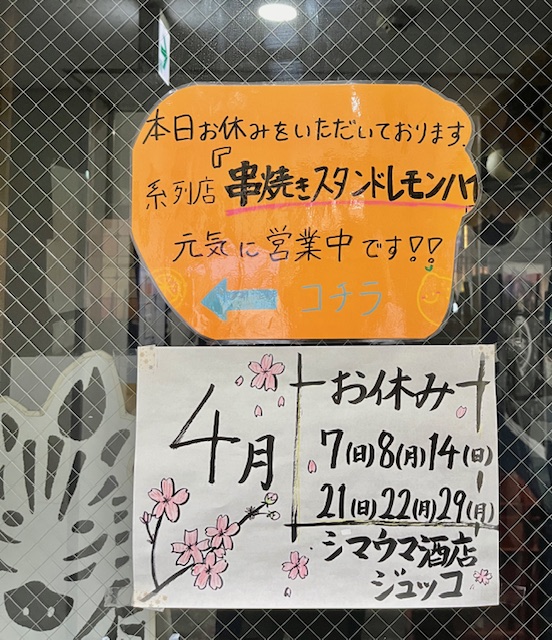 本日お休みをいただいております。
系列店『串焼きスタンドレモンハイ
元気に営業中です!!
コチラ
4月
お休み
7(日)8(月)14(日)
21(日)22(月)29(月)
シマウマ酒店
ジュッコ